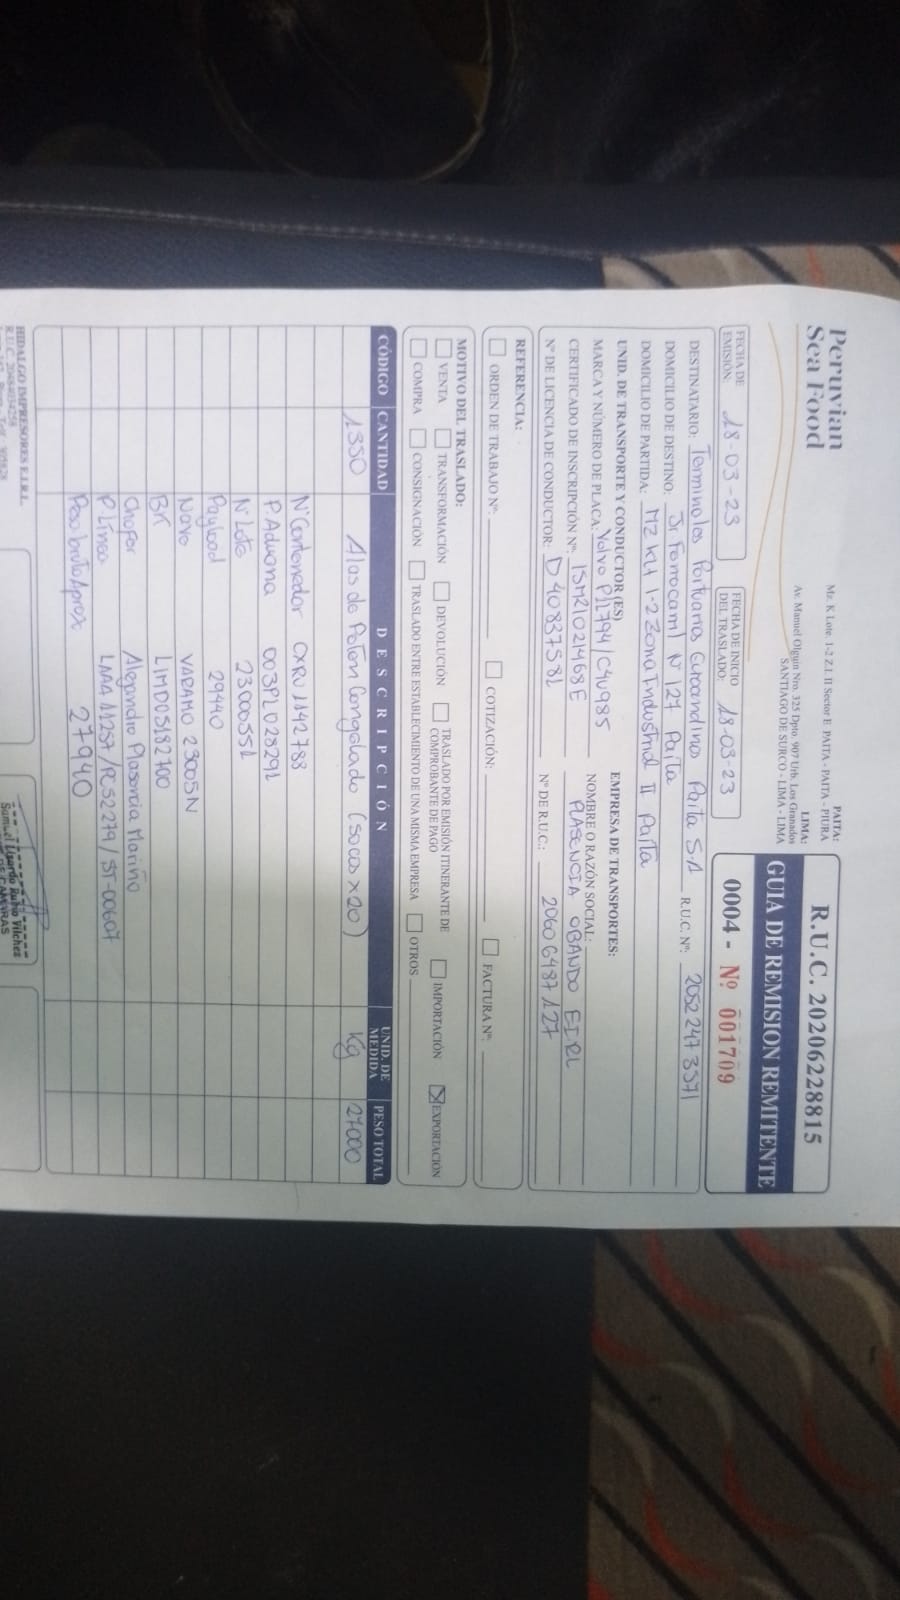 Peruvian
Sea Food
PAITA:
Mz. K Lote. 1-2 Z.I. II Sector E PAITA - PAITA - PIURA
LIMA:
Av. Manuel Olguin Nro. 325 Dpto. 907 Urb. Los Granados
SANTIAGO DE SURCO - LIMA - LIMA
R.U.C. 20206228815
GUIA DE REMISION REMITENTE
0004 - Nº 001709
FECHA DE EMISIÓN: 18-03-23
FECHA DE INICIO DEL TRASLADO: 18-03-23
DESTINATARIO: Terminales Portuarios Euroandinos Paita S.A R.U.C. Nº: 20522473571
DOMICILIO DE DESTINO: Jr Ferrocarril N° 127 Paita
DOMICILIO DE PARTIDA: MZ K Lt 1-2 Zona Industrial II Paita
UNID. DE TRANSPORTE Y CONDUCTOR (ES)
MARCA Y NÚMERO DE PLACA: Volvo P1L794/C4U985
CERTIFICADO DE INSCRIPCIÓN Nº: 15M21021468E
Nº DE LICENCIA DE CONDUCTOR: D40837581
EMPRESA DE TRANSPORTES:
NOMBRE O RAZÓN SOCIAL:
PLASENCIA OBANDO EIRL
Nº DE R.U.C.: 20606487127
REFERENCIA:
ORDEN DE TRABAJO Nº: COTIZACIÓN: FACTURA Nº:
MOTIVO DEL TRASLADO:
VENTA TRANSFORMACIÓN DEVOLUCIÓN TRASLADO POR EMISIÓN ITINERANTE DE COMPROBANTE DE PAGO IMPORTACIÓN EXPORTACIÓN
COMPRA CONSIGNACIÓN TRASLADO ENTRE ESTABLECIMIENTO DE UNA MISMA EMPRESA OTROS
CÓDIGO CANTIDAD DESCRIPCIÓN UNID. DE MEDIDA PESO TOTAL
1350 Alas de Poton Congelado (sacos x 20) Kg 27000
N° Contenedor CXRU 1142788
P. Aduana 003PL028291
N° Lote 2300551
Payload 29440
Nave VARAMO 23005N
BK LIM005182700
Chofer Alegandro Plasencia Mariño
P. Linea LAAA 11257/PC52279/ST-00607
Peso bruto Aprox 27940
HIDALGO IMPRESORES E.I.R.L.
Samuel Lisardo Rubio Vilchez